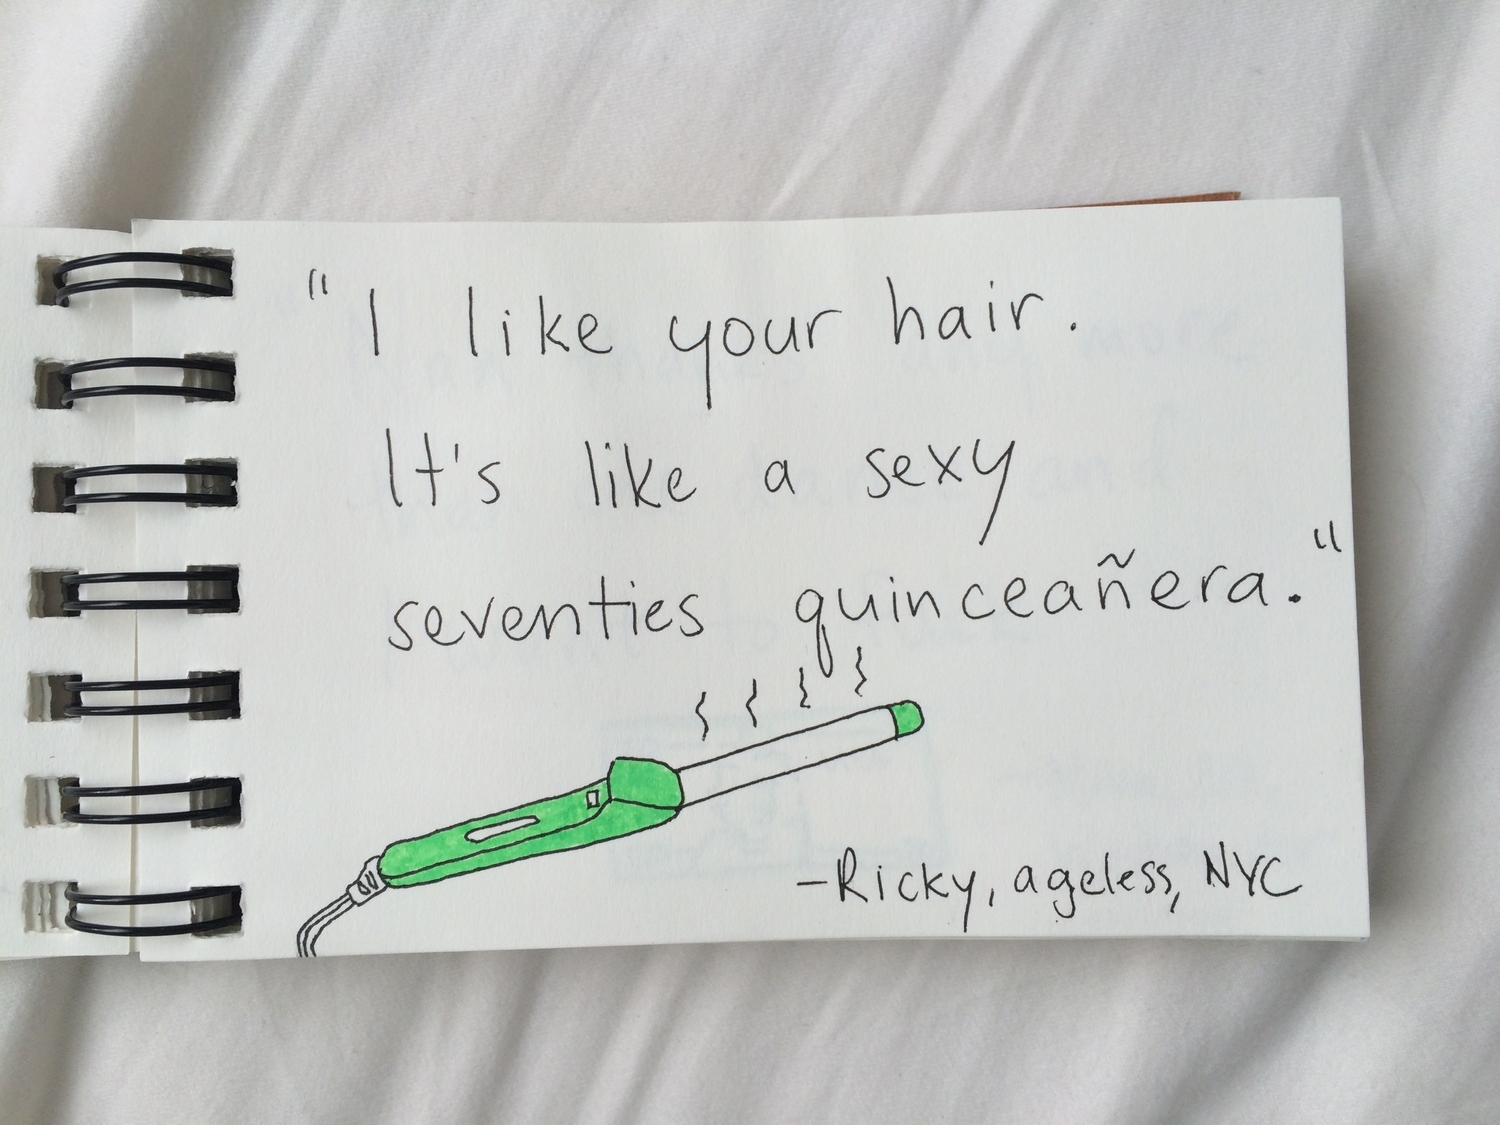 "I like your hair.
It's like a sexy
seventies quinceañera."
-Ricky, ageless, NYC